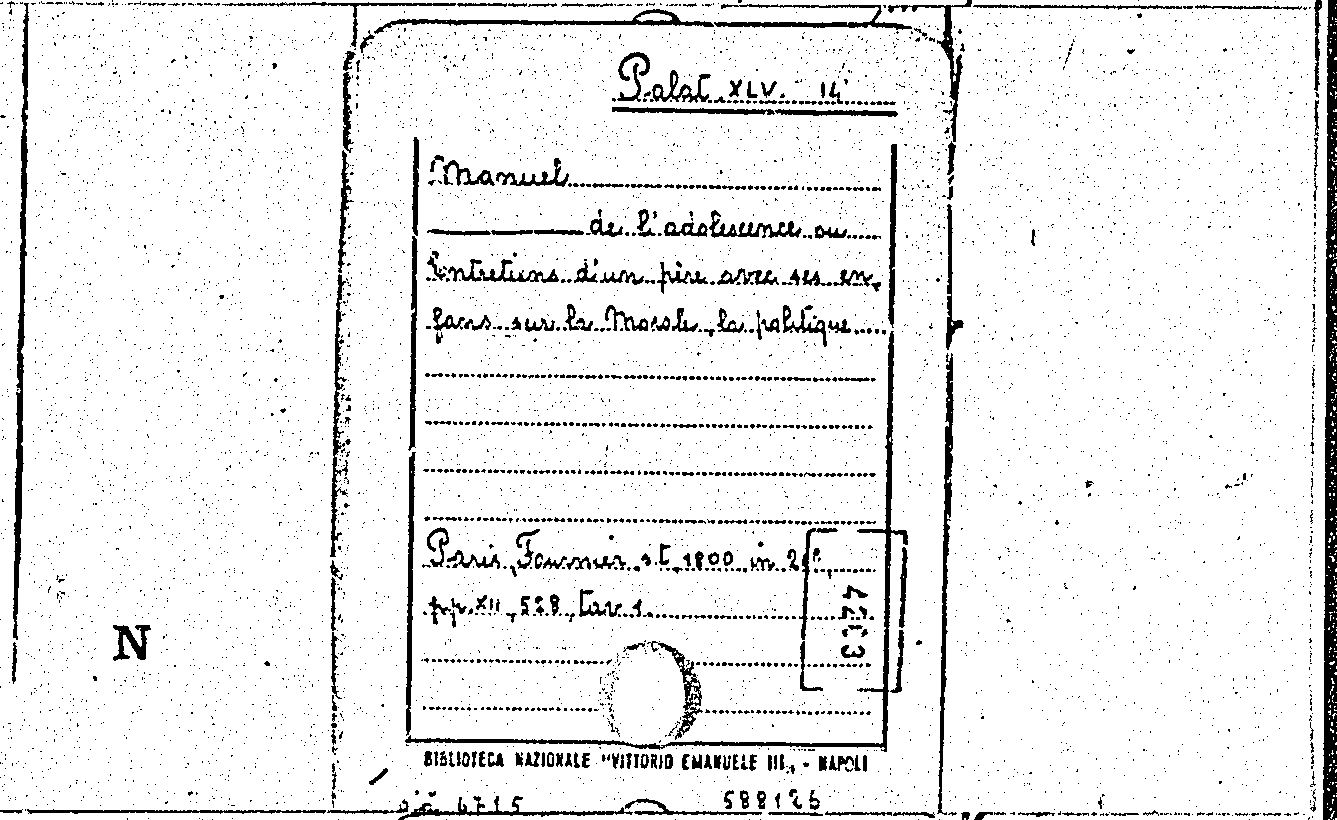 Palat. XLV. 14
Manuel
de l'adolescence ou
Entretiens d'un père avec ses en,
fans sur la Morale, la politique....
Paris, Fournier s.t. 1800 in 24°,
pp. XII, 528, tav 1.
N
BIBLIOTECA NAZIONALE "VITTORIO EMANUELE III„ - NAPOLI
6715 588126